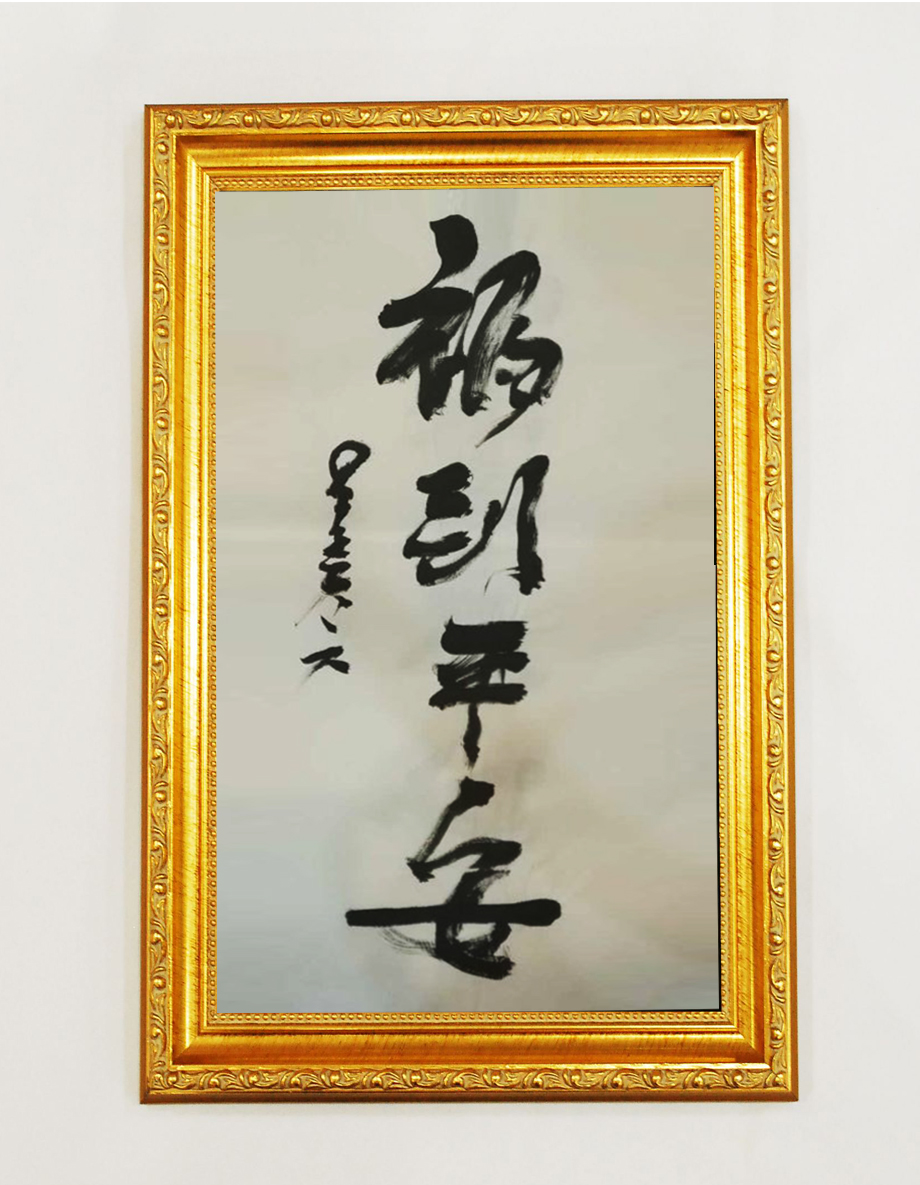 福到平安